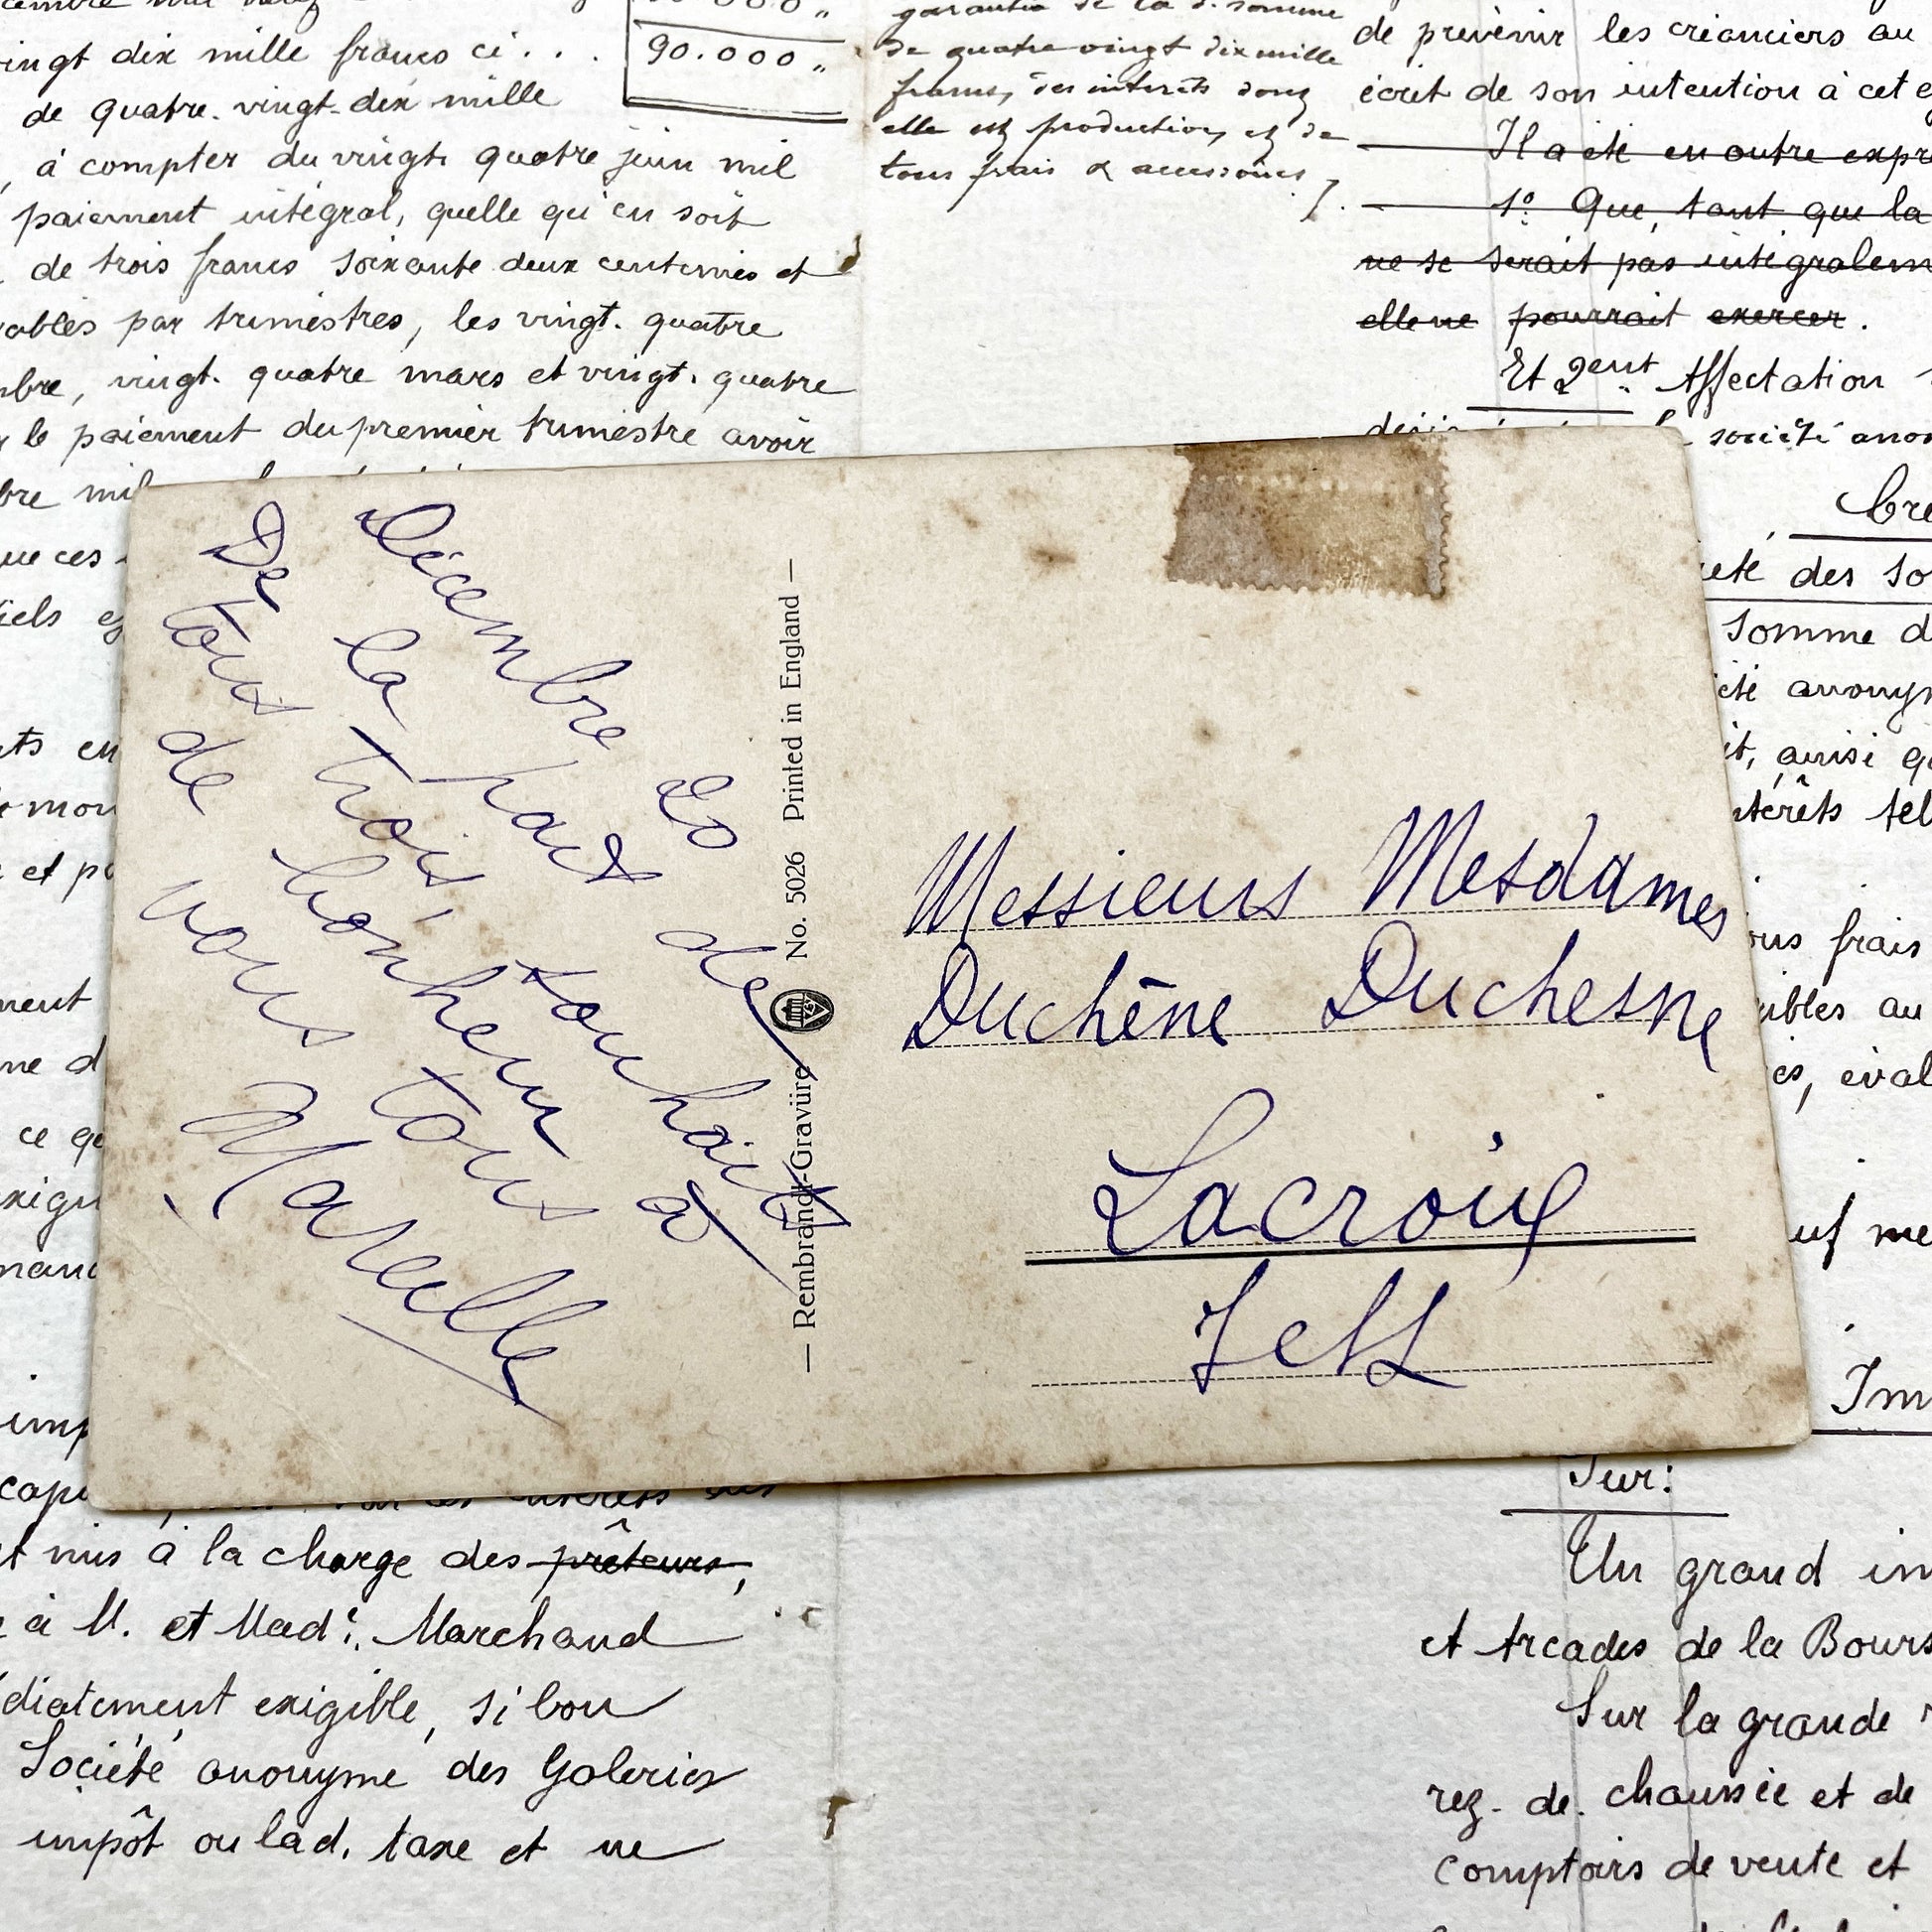 90.000 „
vingt dix mille francs ci . . .
de quatre. vingt-dix mille
à compter du vingt. quatre juin mil
paiement intégral, quelle qu'en soit
de trois francs soixante deux centimes et
par trimestres, les vingt. quatre
vingt. quatre mars et vingt. quatre
le paiement du premier trimestre avoir
garantie de la d. somme
de quatre vingt dix mille
francs, des intérêts dont
elle est production, et de
tous frais & accessoires
de prévenir les créanciers au
écrit de son intention à cet
Il a été en outre
1º. Que, tant que la
ne se serait pas
elle ne pourrait exercer.
Et 2ent. Affectation
société
des
somme
ainsi
intérêts
frais
au
Décembre 20
De la part de
tous trois, souhaits
de bonheur à
vous tous
Marcelle
— Rembrandt-Gravüre No. 5026 Printed in England —
Messieurs Mesdames
Duchêne Duchesne
Lacroix
Jette
et mis à la charge des prêteurs,
à M. et Made. Marchand
exigible, si bon
Société anonyme des Galeries
impôt ou lad. taxe et ne
Sur:
Un grand
et Arcades de la
Sur la grande
rez. de. chaussée et de
comptoirs de vente et